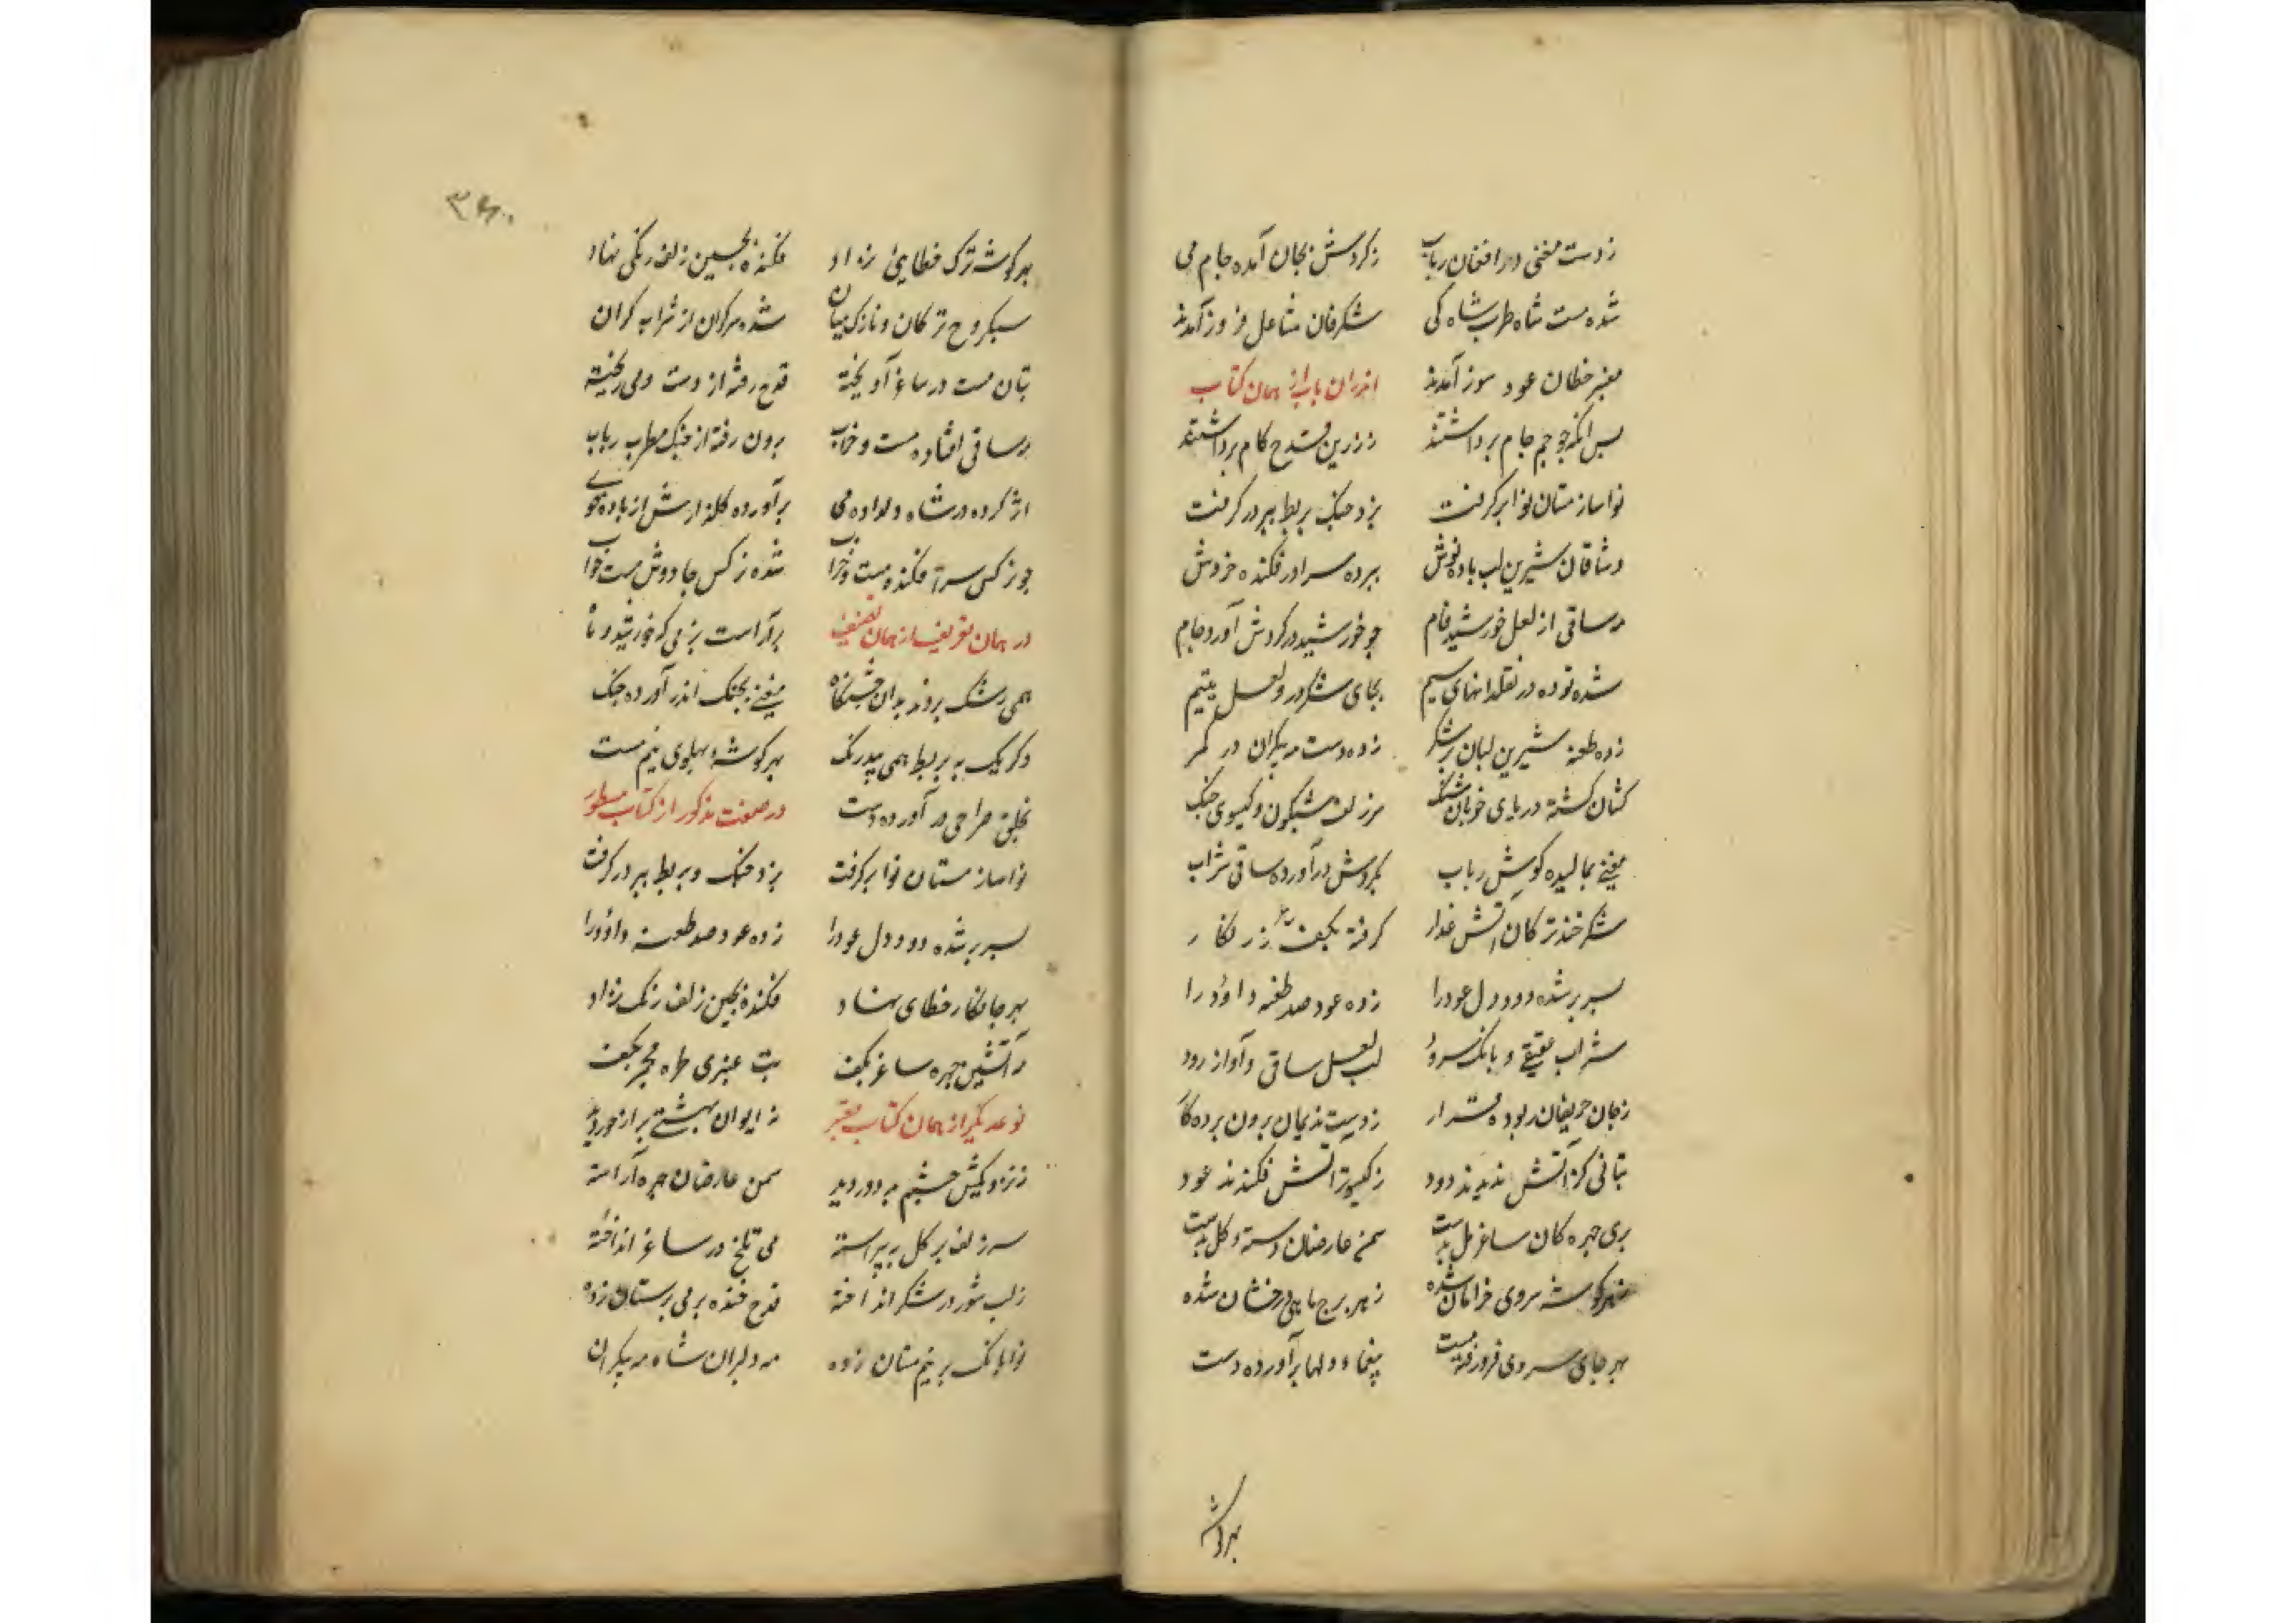 ز دست مغنی در افغان رباب ز کردش بجان آمده جام می
شده مست شاه طرب شاه کی شکرفان مشاعل فروز آمدند
معنبر خطان عود سوز آمدند اندران باب از همان کتاب
بس آنکه جو جم جام برداشتند ز زرین قدح کام برداشتند
نواساز مستان نوا برکرفت بزد جنک بربط ببر در کرفت
وشاقان شیرین لب باده نوش ببرده سرا در فکنده خروش
مه ساقی از لعل خورشید فام جو خورشید در کردش آورد جام
شده توده در نقلدانهای سیم بجای شکر در و لعل یتیم
زده طعنه شیرین لبان بر شکر زده دست مه بیکران در کمر
کشان کشته در بای خوبان شنک سر زلف مشکون و کیسوی جنک
مغنی بمالیده کوش رباب بکردش در آورده ساقی شراب
شکر خند ترکان آتش عذار کرفته بکف زر نکار
بسر بر شده دود دل عود را زده عود صد طعنه داؤد را
شراب عقیقی و بانک سرود لب لعل ساقی و آواز رود
ز جان حریفان ربوده قرار ز دست ندیمان برون برده کار
بتانی کز آتش ندیدند دود ز کیسو بر آتش فکندند عود
بری جهره کان ساغر مل بدست سمن عارضان دسته کل بدست
بهر کوشه سروی خرامان شده ز هر برج ماهی درخشان شده
بهر جای سروی فروزنده مست بیغماء دلها برآورده دست
بهر کوشه
۳۶۰
بهر کوشه ترک خطایئ نژاد فکنده بجین زلف زنکی نهاد
سبکروح ترکان و نازک میان شده سرکران از شراب کران
بتان مست در ساغر آویخته قدح رفته از دست و می ریخته
مه ساقی افتاده مست و خراب برون رفته از جنک مطرب رباب
اثر کرده در شاه دلداده می برآورده کلنار رش از باده خوی
جو نرکس سر افکنده مست و خراب شده نرکس جادوش مست خواب
در همان تعریف از همان تصنیف برآراست بزمی که خورشید و ماه
همی رشک بردند بدان جشنکاه مغنی بجنک اندر آورده جنک
دکر یک به بربط همی بد رنک بهر کوشه بهلوی نیم مست
بحلق صراحی در آورده دست در صفت مذکور از کتاب مسطور
نواساز مستان نوا برکرفت بزد جنک و بربط ببر در کرفت
بسر بر شده دود دل عود را زده عود صد طعنه داؤد را
بهر جا نکار خطای نهاد فکنده بجین زلف زنک نژاد
مه آتشین جهره ساغر بکف بت عنبری طره مجمر بکف
نوعدیکر از همان کتاب معتبر نه ایوان بهشتی بر از حور دید
ز نزدیکیش جشم بد دور دید سمن عارضان جهره آراسته
سر زلف بر کل به بیراسته می تلخ در ساغر انداخته
ز لب شور در شکر انداخته قدح خنده بر می برستان زده
نوا بانک بر نیم مستان زده مه دلبران شاه مه بیکران